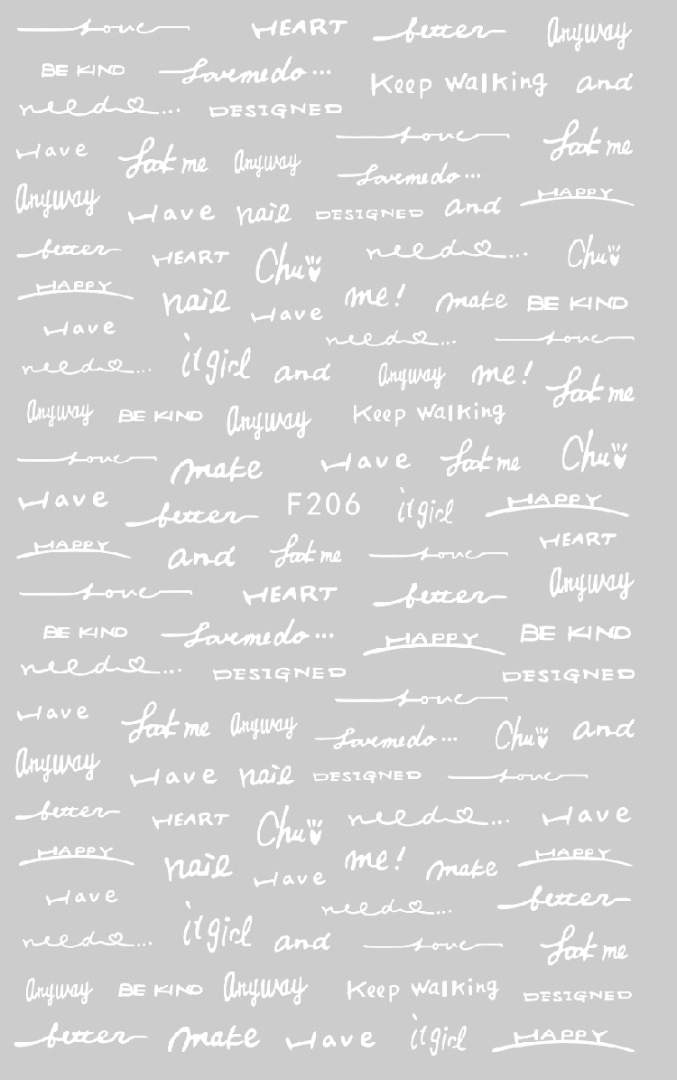 love HEART better Anyway
BE KIND Lovemedo... Keep Walking and
need... DESIGNED
Have Look me Anyway love Look me
Lovemedo...
Anyway Have nail DESIGNED and HAPPY
better HEART Chu need... Chu
HAPPY nail Have me! make BE KIND
Have need... love
need... it girl and Anyway me! Look me
Anyway BE KIND Anyway Keep Walking
love make Have Look me Chu
Have better F206 it girl HAPPY
HAPPY and Look me love HEART
love HEART better Anyway
BE KIND Lovemedo... HAPPY BE KIND
need... DESIGNED DESIGNED
love
Have Look me Anyway Lovemedo... Chu and
Anyway Have nail DESIGNED love
better HEART Chu need... Have
HAPPY nail Have me! make HAPPY
Have need... better
need... it girl and love Look me
Anyway BE KIND Anyway Keep Walking DESIGNED
better make Have it girl HAPPY